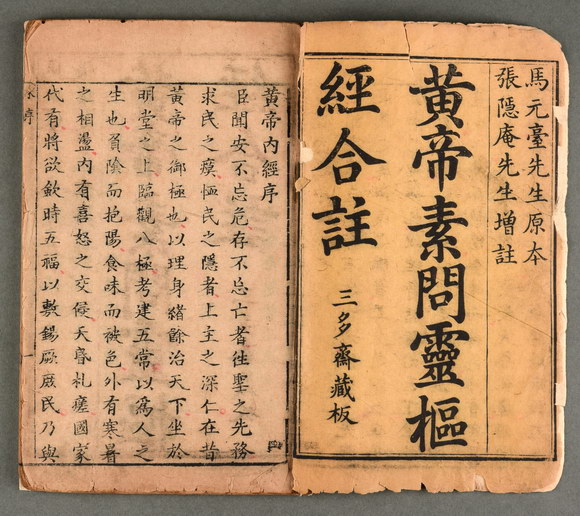 馬元臺先生原本
張隱庵先生增註
黃帝素問靈樞
經合註
三多齋藏板
黃帝內經序
臣聞安不忘危存不忘亡者徃聖之先務
求民之瘼民之隱者上主之深仁在昔
黃帝之御極也以理身緒餘治天下坐於
明堂之上臨觀八極考建五常以爲人之
生也負陰而抱陽食味而被色外有寒暑
之相盪內有喜怒之交侵夭昏札瘥國家
代有將欲歛時五福以敷錫厥庶民乃與
序 一